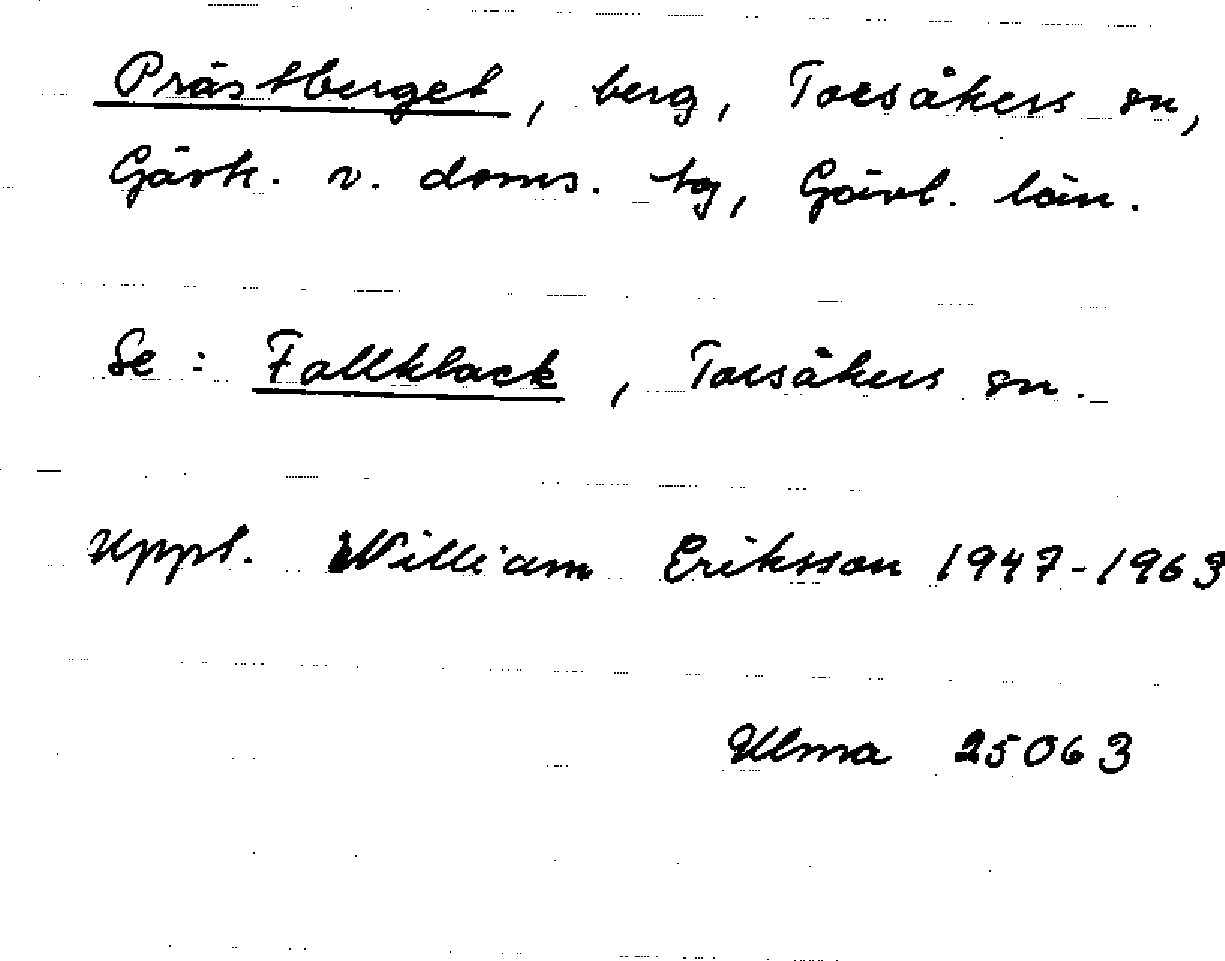 Prästberget, berg, Torsåkers sn,
Gävk. v. doms. tg, Gävl. län.
Se: Fallklack, Torsåkers sn.
Uppt. William Eriksson 1947-1963
Ulma 25063